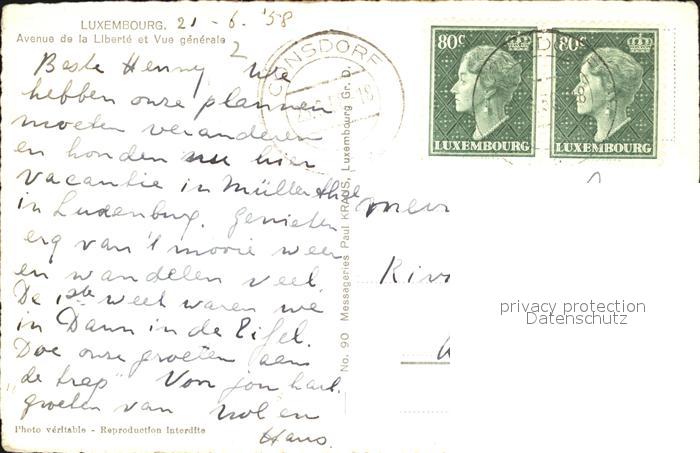 LUXEMBOURG. 21-6.'58
Avenue de la Liberté et Vue générale
Beste Henny, We
hebben onze plannen
moeten veranderen
en houden nu hier
vacantie in Müllerthal
in Luxemburg. Genieten
erg van 't mooie weer
en wandelen veel.
De 1ste week waren we
in Daun in de Eifel.
Doe onze groeten aan
"de trap" Voor jou hart.
groeten van en
Hans.
Photo véritable - Reproduction interdite
No. 90 Messageries Paul KRAUS, Luxembourg Gr. D.
CONSDORF
80c
LUXEMBOURG
80c
LUXEMBOURG
privacy protection
Datenschutz